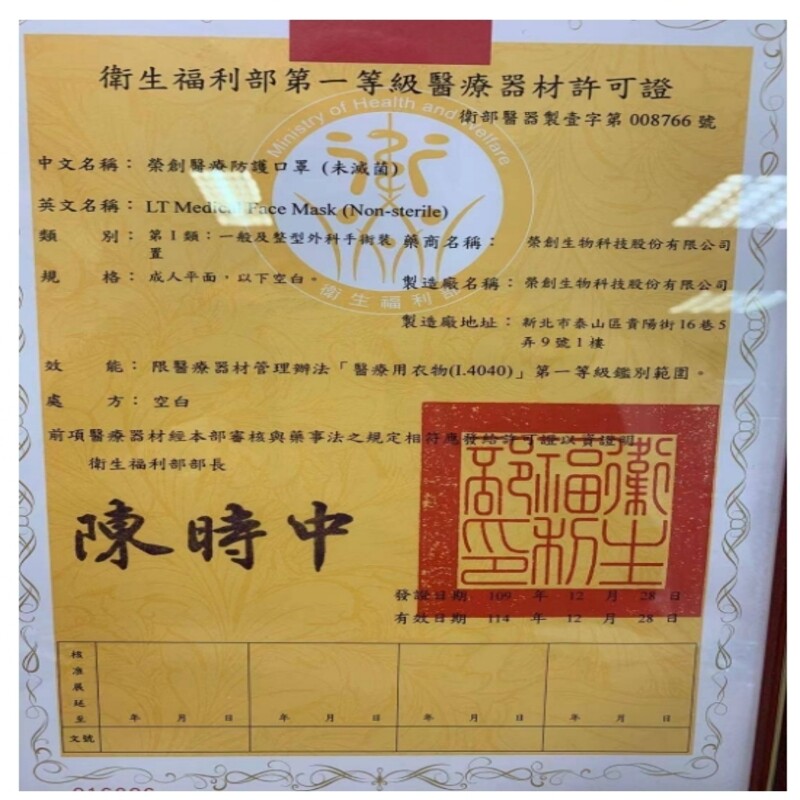 衛生福利部第一等級醫療器材許可證
衛部醫器製壹字第 008766 號
Ministry of Health and Welfare
中文名稱：榮創醫療防護口罩 (未滅菌)
英文名稱：LT Medical Face Mask (Non-sterile)
類 別：第 I 類：一般及整型外科手術裝置
藥商名稱：榮創生物科技股份有限公司
規 格：成人平面，以下空白。
製造廠名稱：榮創生物科技股份有限公司
衛生福利部
製造廠地址：新北市泰山區貴陽街16巷5
弄9號1樓
效 能：限醫療器材管理辦法「醫療用衣物(I.4040)」第一等級鑑別範圍。
處 方：空白
前項醫療器材經本部審核與藥事法之規定相符應發給許可證以資證明
衛生福利部部長
陳時中
衛生福利部印
發證日期 109 年 12 月 28 日
有效日期 114 年 12 月 28 日
核准展延至 年 月 日 年 月 日 年 月 日 年 月 日
文號